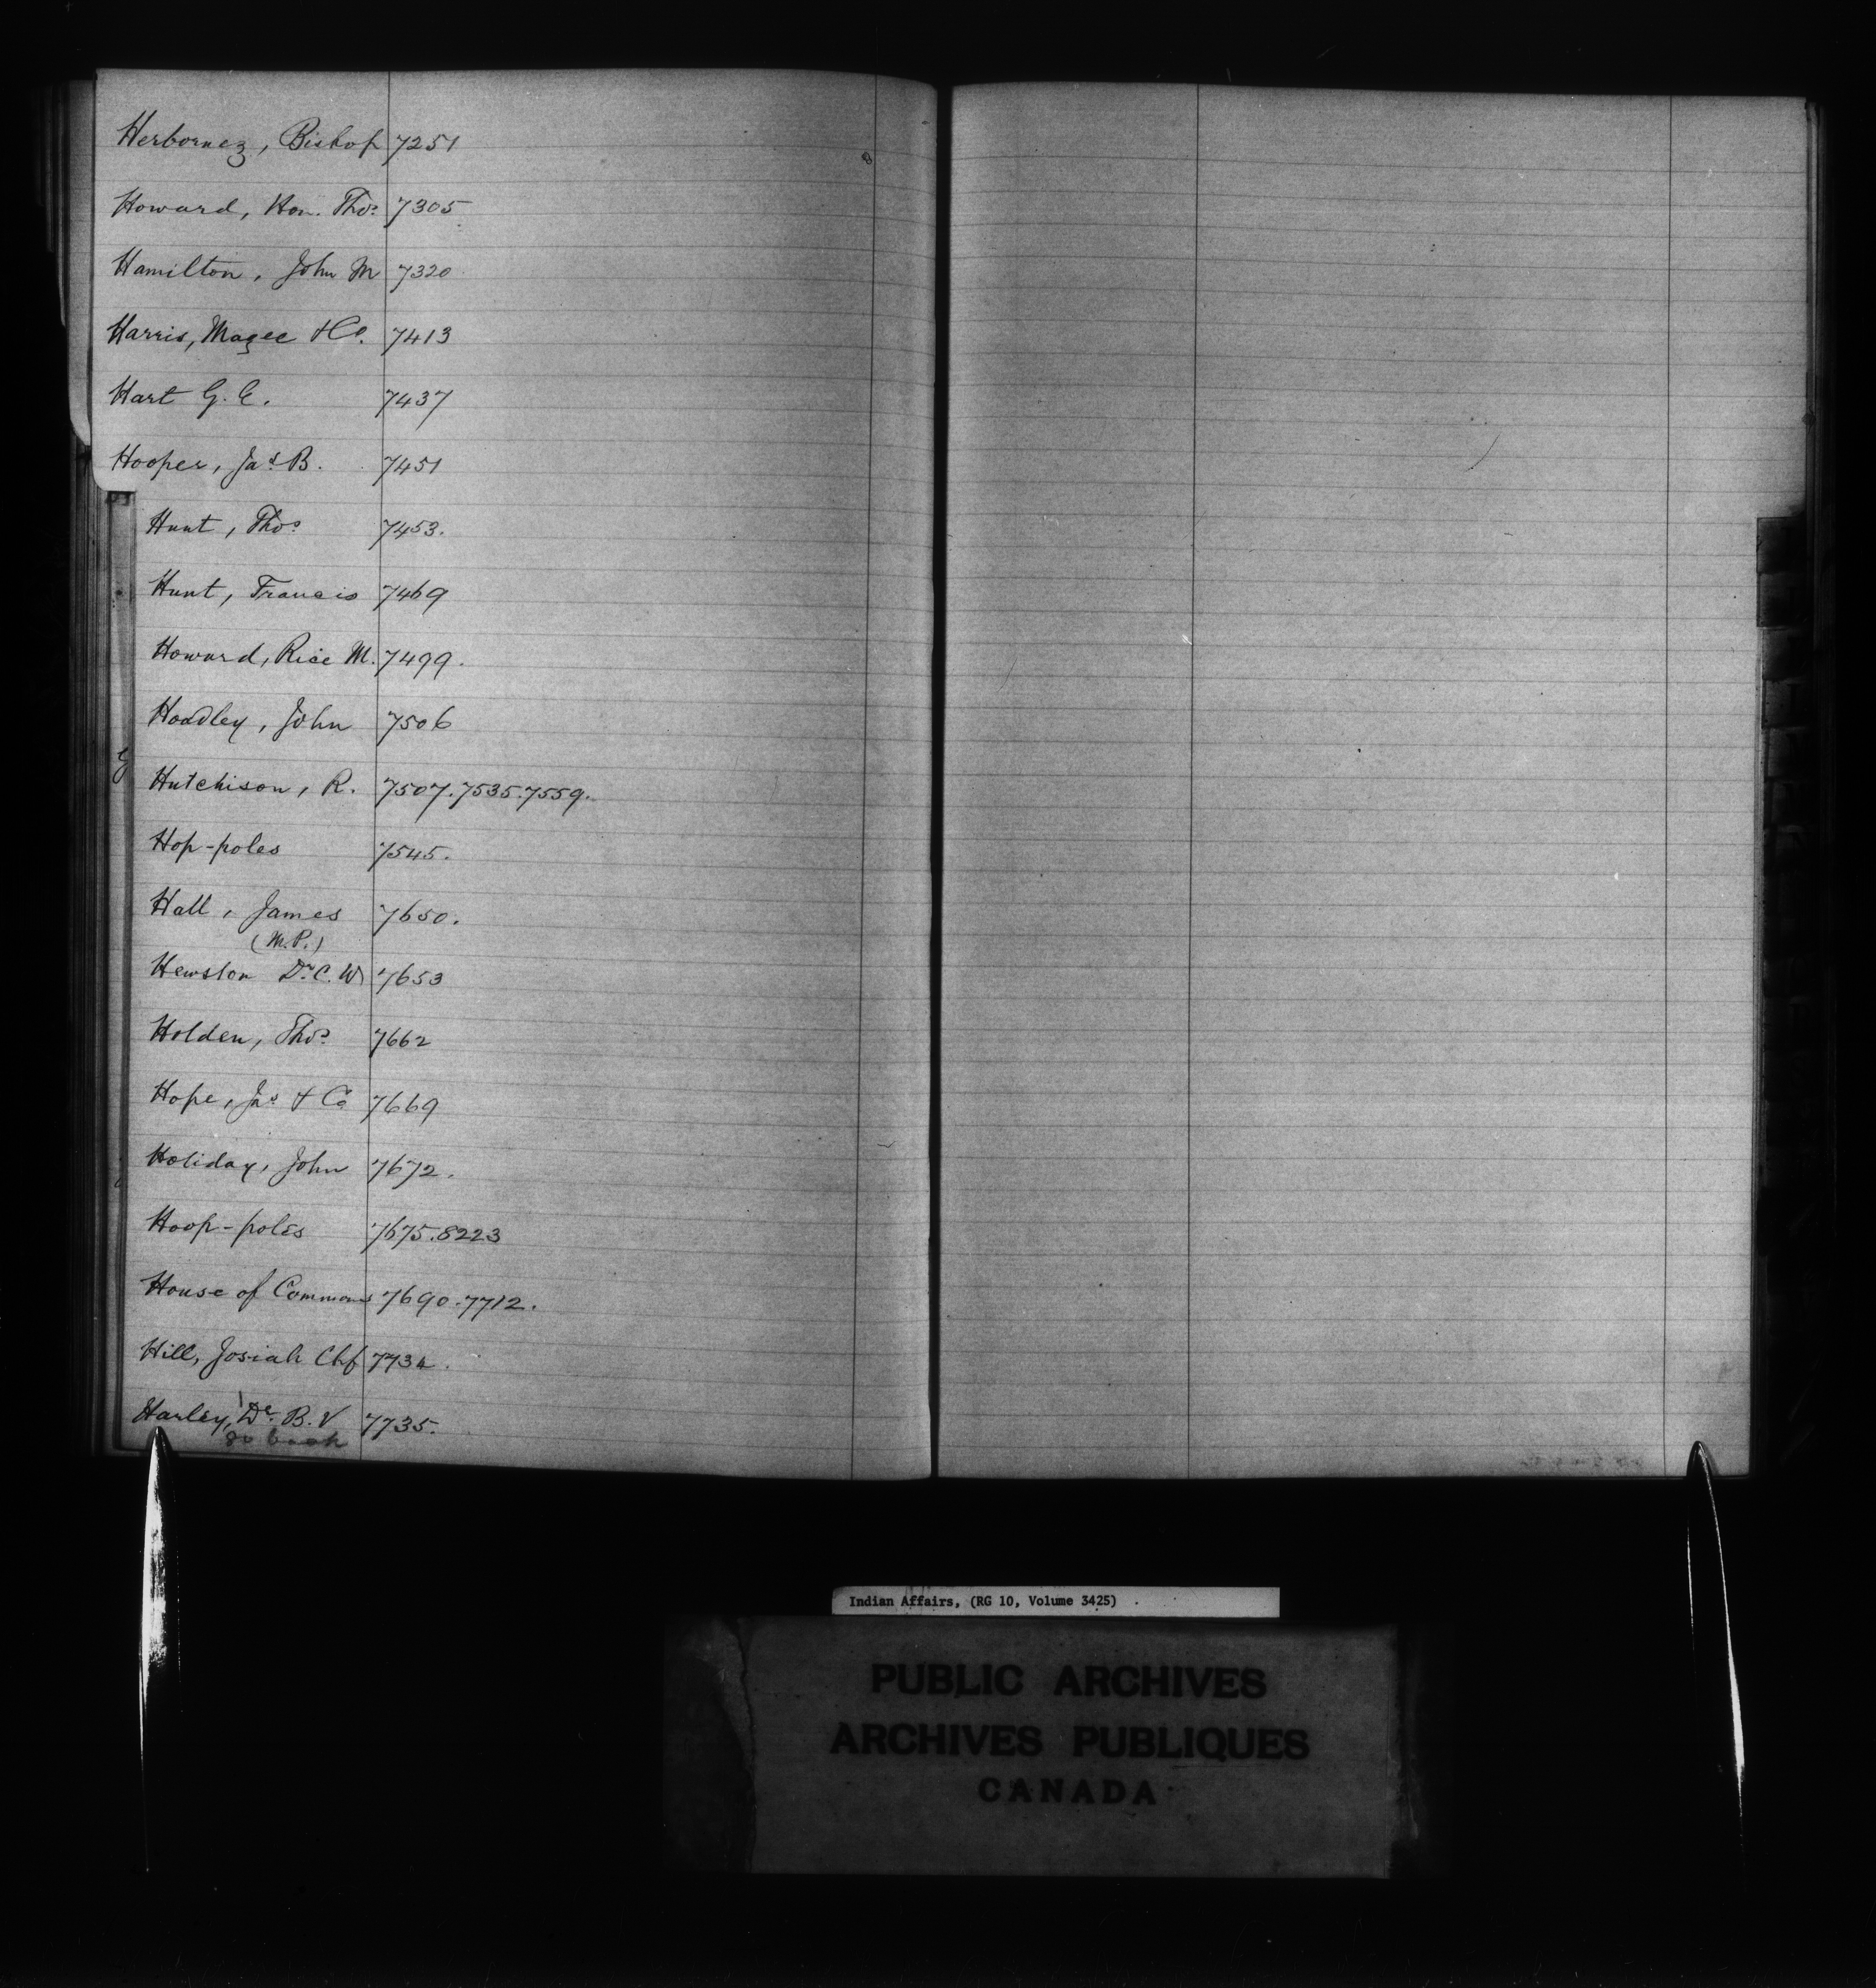 Herbornez, Bishop 7251
Howard, Hon. Thos. 7305
Hamilton, John M 7320
Harris, Magee & Co. 7413
Hart G. E. 7437
Hooper, Jas B. 7451
Hunt, Thos. 7453.
Hunt, Francis 7469
Howard, Rice M. 7499.
Hoadley, John 7506
Hutchison, R. 7507.7535.7559.
Hop-poles 7545.
Hall, James 7650.
(M.P.)
Hewston Dr. C. W 7653
Holden, Thos. 7662
Hope, Jas & Co 7669
Holiday, John 7672.
Hoop-poles 7675.8223
House of Commons 7690.7712.
Hill, Josiah Chf 7734.
Harley, Dr. B. V 7735.
go back
Indian Affairs, (RG 10, Volume 3425)
PUBLIC ARCHIVES
ARCHIVES PUBLIQUES
CANADA